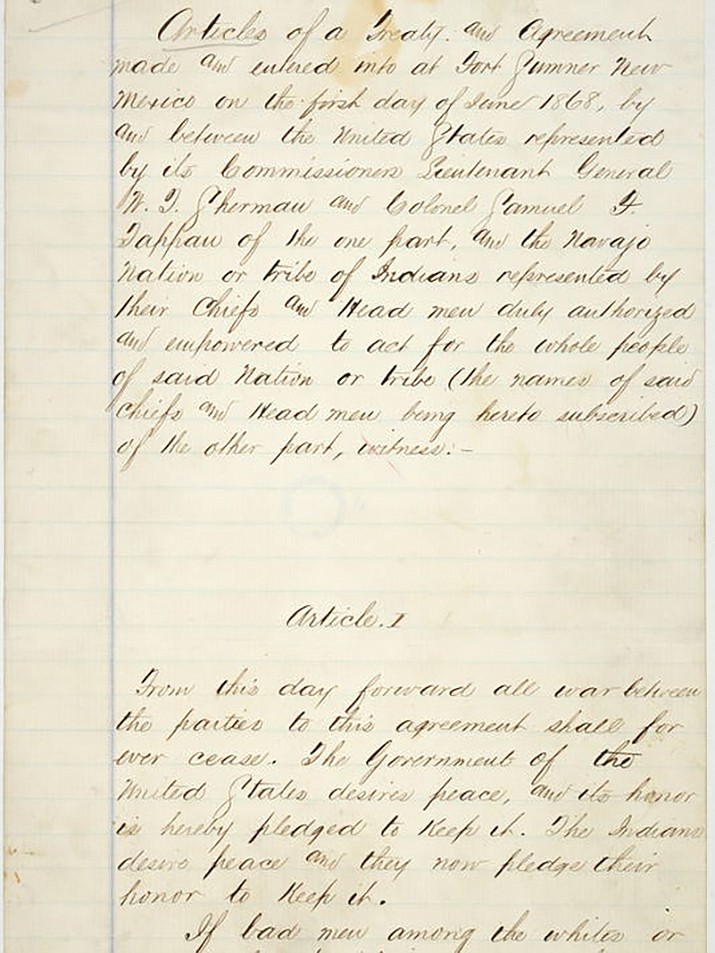 Articles of a Treaty. and Agreement
made and entered into at Fort Sumner New
Mexico on the first day of June 1868, by
and between the United States represented
by its Commissioners Lieutenant General
W. T. Sherman and Colonel Samuel F.
Tappan of the one part, and the Navajo
Nation or tribe of Indians represented by
their Chiefs and Head men duly authorized
and empowered to act for the whole people
of said Nation or tribe (the names of said
Chiefs and Head men being hereto subscribed)
of the other part, witness:-
Article. I
From this day forward all war between
the parties to this agreement shall for
ever cease. The Government of the
United States desires peace, and its honor
is hereby pledged to keep it. The Indians
desire peace and they now pledge their
honor to keep it.
If bad men among the whites or